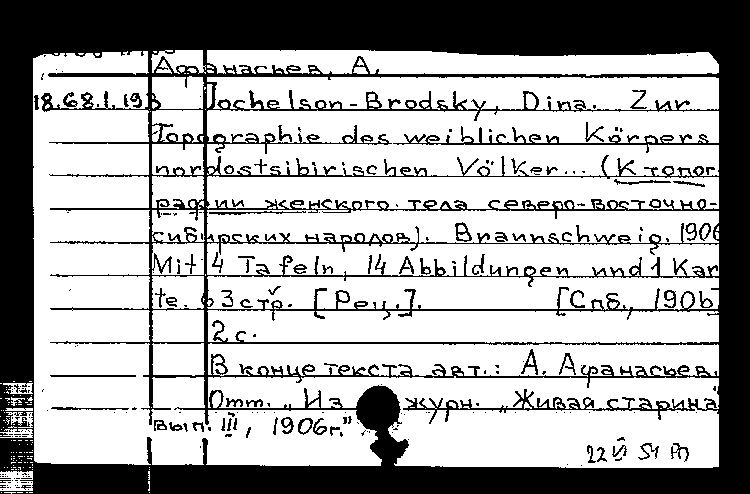 Афанасьев, А.
18.68.1.193 Jochelson-Brodsky, Dina. Zur
Topographie des weiblichen Körpers
nordostsibirischen Völker... (К топог-
рафии женского тела северо-восточно-
сибирских народов). Braunschweig. 1906
Mit 4 Tafeln, 14 Abbildungen und 1 Kar
te. 63 стр. [Рец.]. [Спб., 1906]
2 с.
В конце текста авт.: А. Афанасьев.
Отт. „Из журн. „Живая старина"
вып. III, 1906г."